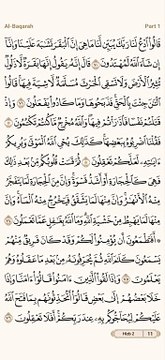 Al-Baqarah Part 1
قَالُوا۟ ٱدْعُ لَنَا رَبَّكَ يُبَيِّن لَّنَا مَا هِىَ إِنَّ ٱلْبَقَرَ تَشَٰبَهَ عَلَيْنَا وَإِنَّآ
إِن شَآءَ ٱللَّهُ لَمُهْتَدُونَ ٧٠ قَالَ إِنَّهُۥ يَقُولُ إِنَّهَا بَقَرَةٌ لَّا ذَلُولٌ
تُثِيرُ ٱلْأَرْضَ وَلَا تَسْقِى ٱلْحَرْثَ مُسَلَّمَةٌ لَّا شِيَةَ فِيهَا قَالُوا۟
ٱلْـَٰٔنَ جِئْتَ بِٱلْحَقِّ فَذَبَحُوهَا وَمَا كَادُوا۟ يَفْعَلُونَ ٧١ وَإِذْ
قَتَلْتُمْ نَفْسًا فَٱدَّٰرَْٰٔتُمْ فِيهَا وَٱللَّهُ مُخْرِجٌ مَّا كُنتُمْ تَكْتُمُونَ ٧٢
فَقُلْنَا ٱضْرِبُوهُ بِبَعْضِهَا كَذَٰلِكَ يُحْىِ ٱللَّهُ ٱلْمَوْتَىٰ وَيُرِيكُمْ
ءَايَٰتِهِۦ لَعَلَّكُمْ تَعْقِلُونَ ٧٣ ثُمَّ قَسَتْ قُلُوبُكُم مِّنۢ بَعْدِ ذَٰلِكَ
فَهِىَ كَٱلْحِجَارَةِ أَوْ أَشَدُّ قَسْوَةً وَإِنَّ مِنَ ٱلْحِجَارَةِ لَمَا يَتَفَجَّرُ
مِنْهُ ٱلْأَنْهَٰرُ وَإِنَّ مِنْهَا لَمَا يَشَّقَّقُ فَيَخْرُجُ مِنْهُ ٱلْمَآءُ وَإِنَّ
مِنْهَا لَمَا يَهْبِطُ مِنْ خَشْيَةِ ٱللَّهِ وَمَا ٱللَّهُ بِغَٰفِلٍ عَمَّا تَعْمَلُونَ ٧٤
۞ أَفَتَطْمَعُونَ أَن يُؤْمِنُوا۟ لَكُمْ وَقَدْ كَانَ فَرِيقٌ مِّنْهُمْ
يَسْمَعُونَ كَلَٰمَ ٱللَّهِ ثُمَّ يُحَرِّفُونَهُۥ مِنۢ بَعْدِ مَا عَقَلُوهُ وَهُمْ
يَعْلَمُونَ ٧٥ وَإِذَا لَقُوا۟ ٱلَّذِينَ ءَامَنُوا۟ قَالُوٓا۟ ءَامَنَّا وَإِذَا
خَلَا بَعْضُهُمْ إِلَىٰ بَعْضٍ قَالُوٓا۟ أَتُحَدِّثُونَهُم بِمَا فَتَحَ ٱللَّهُ
عَلَيْكُمْ لِيُحَآجُّوكُم بِهِۦ عِندَ رَبِّكُمْ أَفَلَا تَعْقِلُونَ ٧٦
Hizb 2 11